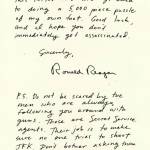 to doing a 5,000 piece puzzle
of my own last. Good luck,
and I hope you don't
immediately get assassinated.
Sincerely,
Ronald Reagan
P.S. Do not be scared by the
men who are always
following you around with
guns. These are Secret Service
agents. Their job is to make
sure no one tries to shoot
JFK. Don't bother asking them